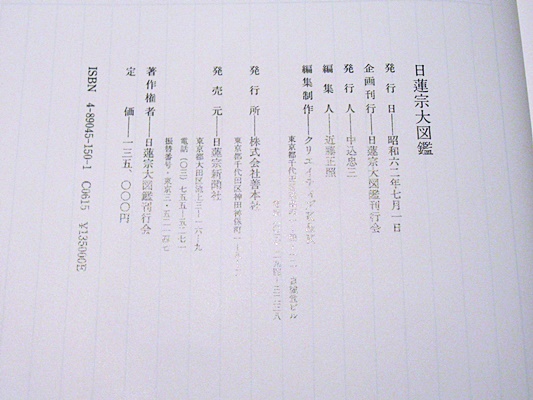 日蓮宗大図鑑
発行日―昭和六二年七月一日
企画刊行―日蓮宗大図鑑刊行会
発行人―中込忠三
編集人―近藤正照
編集制作―クリエイティブ
東京都千代田区 ビル
発行所―株式会社善本社
東京都千代田区神田神保町
発売元―日蓮宗新聞社
東京都大田区池上三―一六―九
電話(〇三)七五五―五二七一
振替番号・東京
著作権者―日蓮宗大図鑑刊行会
定価―一三五、〇〇〇円
ISBN 4-89045-150-1 C0615 ¥135000E